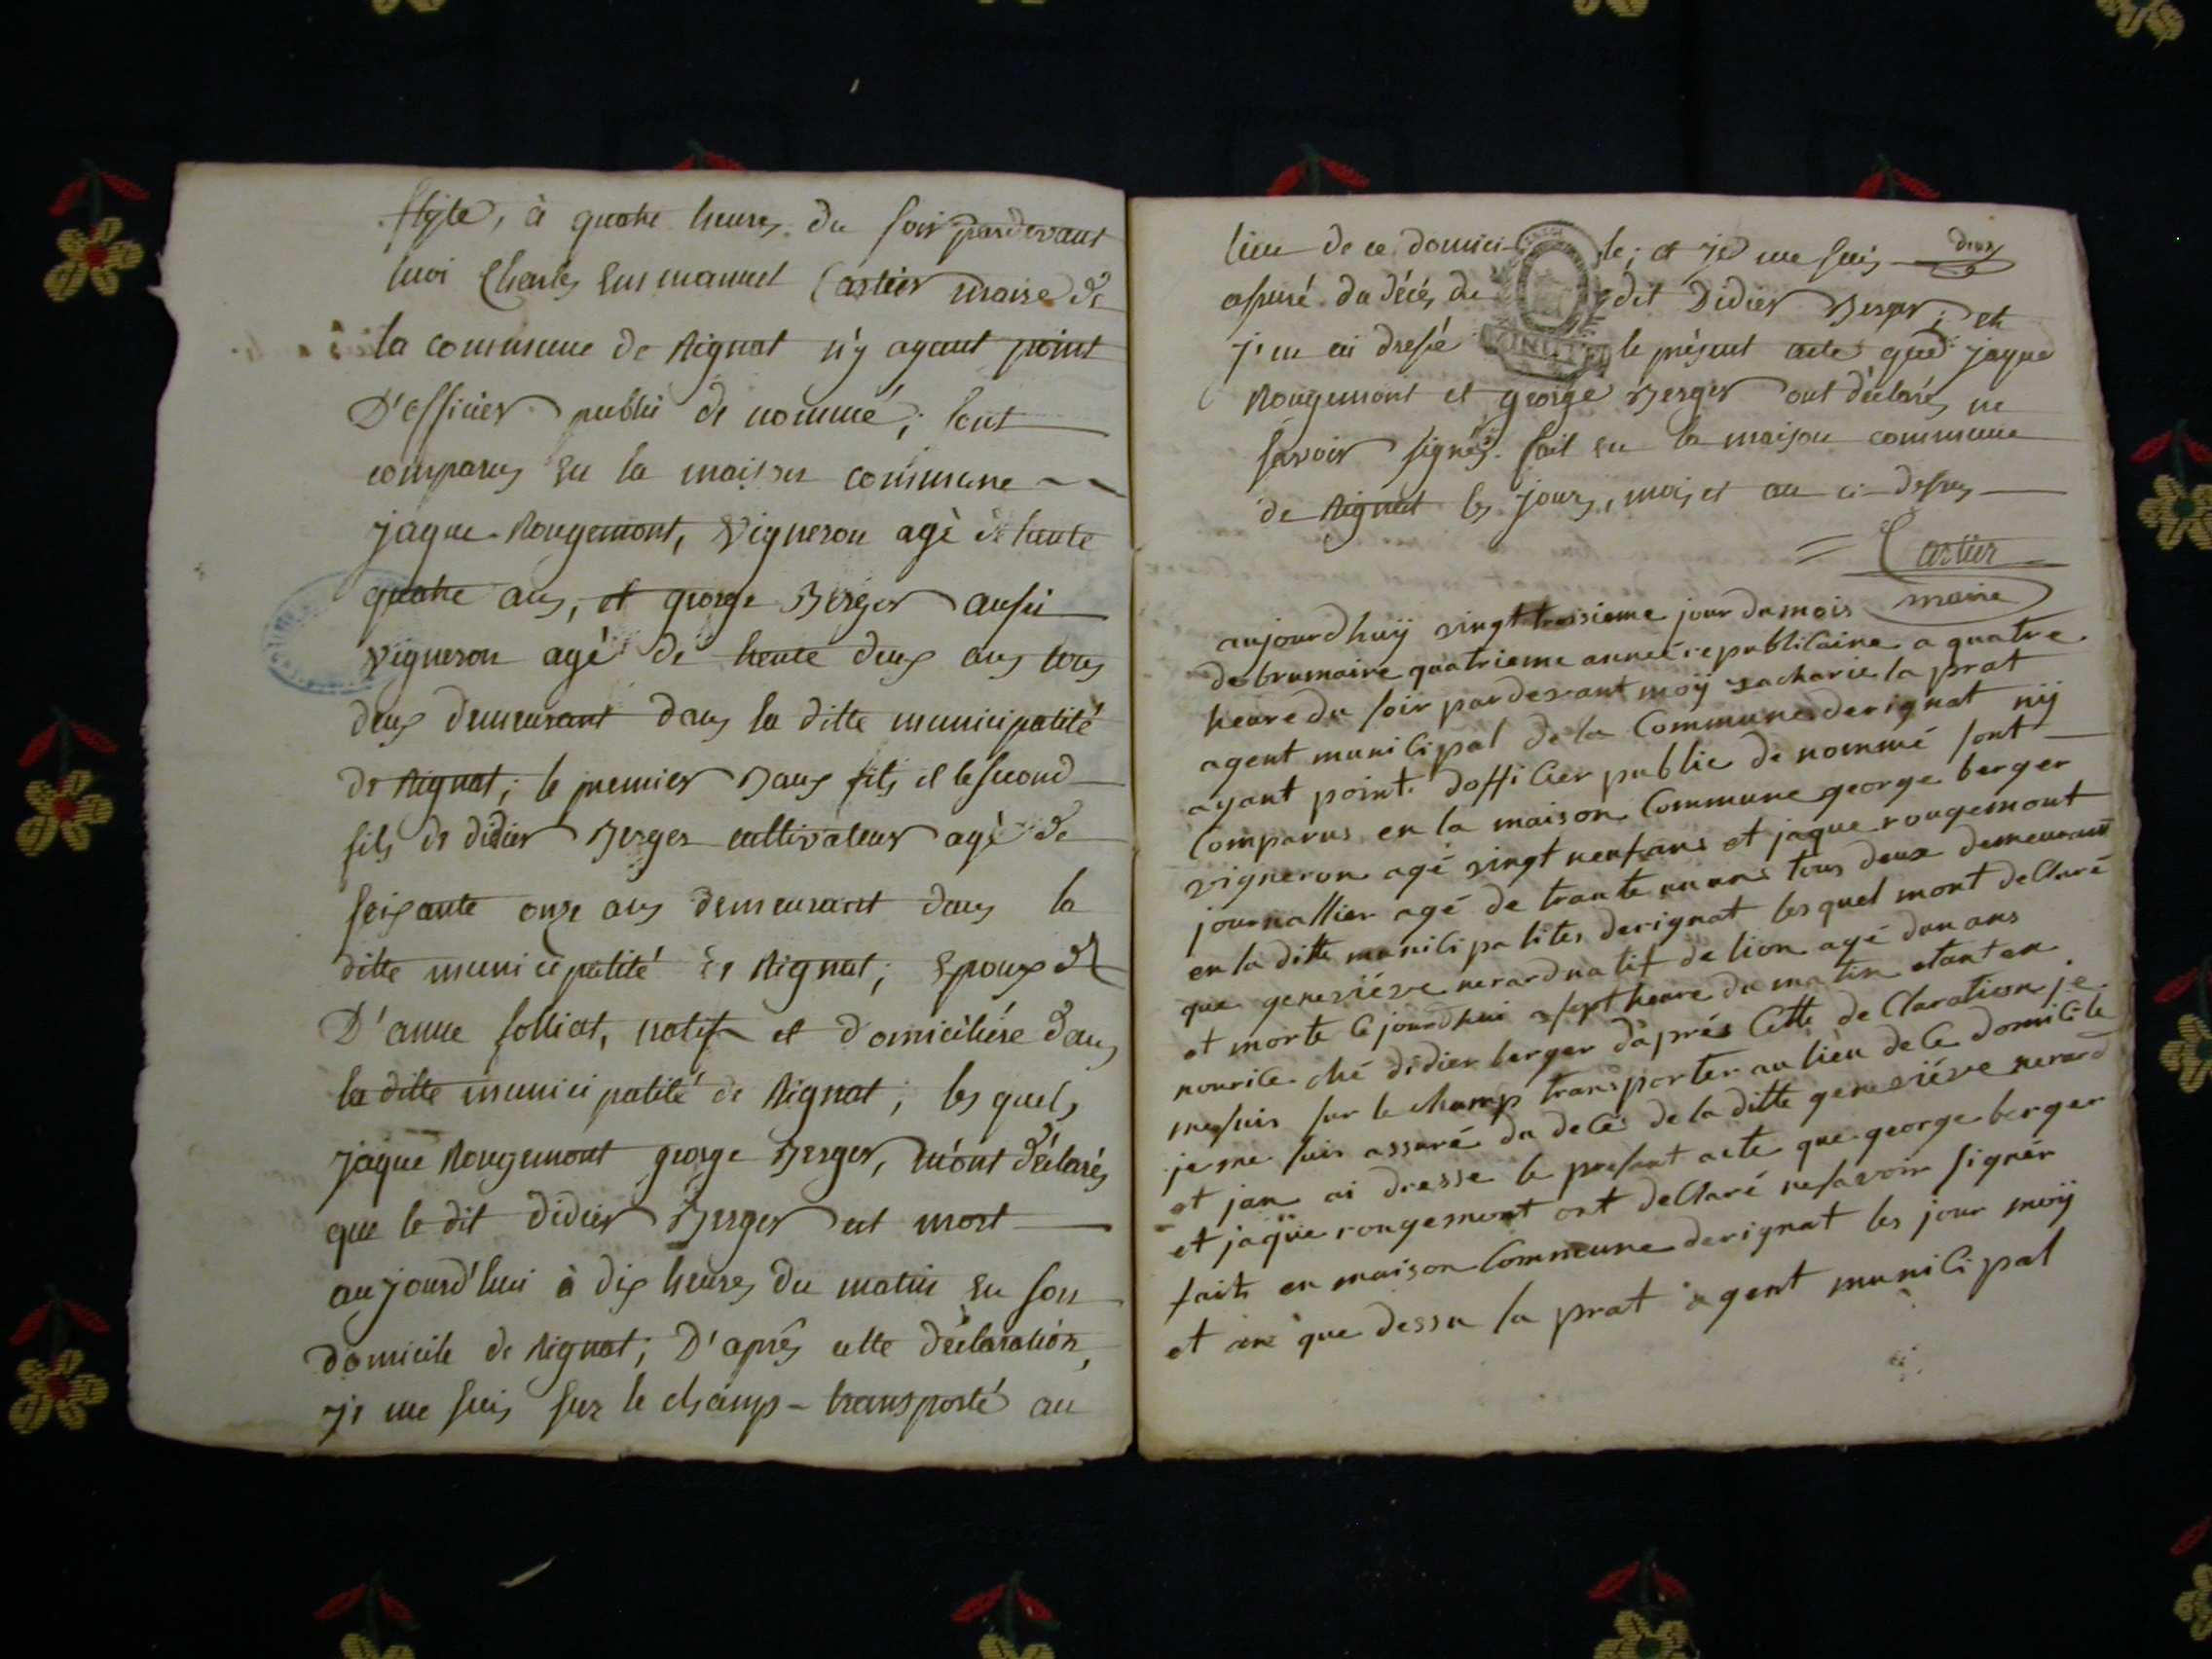 style, à quatre heures du soir pardevant
moi Charles Emmanuel Cartier maire de
la commune de Rignat n'y ayant point
D'officier public de nommé, sont
comparus en la maison commune
jaque Rougemont, vigneron agé de trente
quatre ans, et george Berger aussi
vigneron agé de trente deux ans tous
deux demeurant dans la ditte municipalité
de Rignat; le premier Beaux fils et le second
fils de didier Berger cultivateur agé de
seixante onze ans demeurant dans la
ditte municipalité de Rignat; Epoux de
D'anne folliat, natif et domiciliére dans
la ditte municipalité de Rignat; les quels
jaque Rougemont george Berger, m'ont déclarés
que le dit didier Berger est mort
aujourd'hui à dix heures du matin en son
domicile de Rignat; D'après cette déclaration,
je me suis sur le champ transporté au
lieu de ce domicile; et je me suis deux
assuré du décés du dit Didier Berger; et
j'en ai dressé le présent acte que jaque
MINUTE
Rougemont et george Berger ont déclarés ne
savoir signés. fait en la maison commune
de Rignat les jours, mois et an ci-dessus
Cartier
maire
aujourdhuÿ vingt troisieme jour du mois
de brumaire quatrieme année republicaine a quatre
heure du soir pardevant moÿ zacharie la prat
agent municipal de la Commune derignat nÿ
ayant point dofficier public de nommé sont
Comparus en la maison Commune george berger
vigneron agé vingt neufans et jaque rougemont
journallier agé de trante un ans tous deux demeurant
en la ditte municipalites derignat lesquel mont declaré
que geneviéve nerard natif de lion agé dun ans
et morte ce jourdhui a sept heure du matin etant en
nourice ché didier berger dàprés cette declaration je
mesuis sur le champ transporter au lieu de ce domicile
je me suis assuré du decé de la ditte geneviéve nerard
et jan ai dresse le presant acte que george berger
et jaque rougemont ont declaré nesavoir signér
fait en maison Commune derignat les jour moÿ
et ane que dessu la prat agent municipal